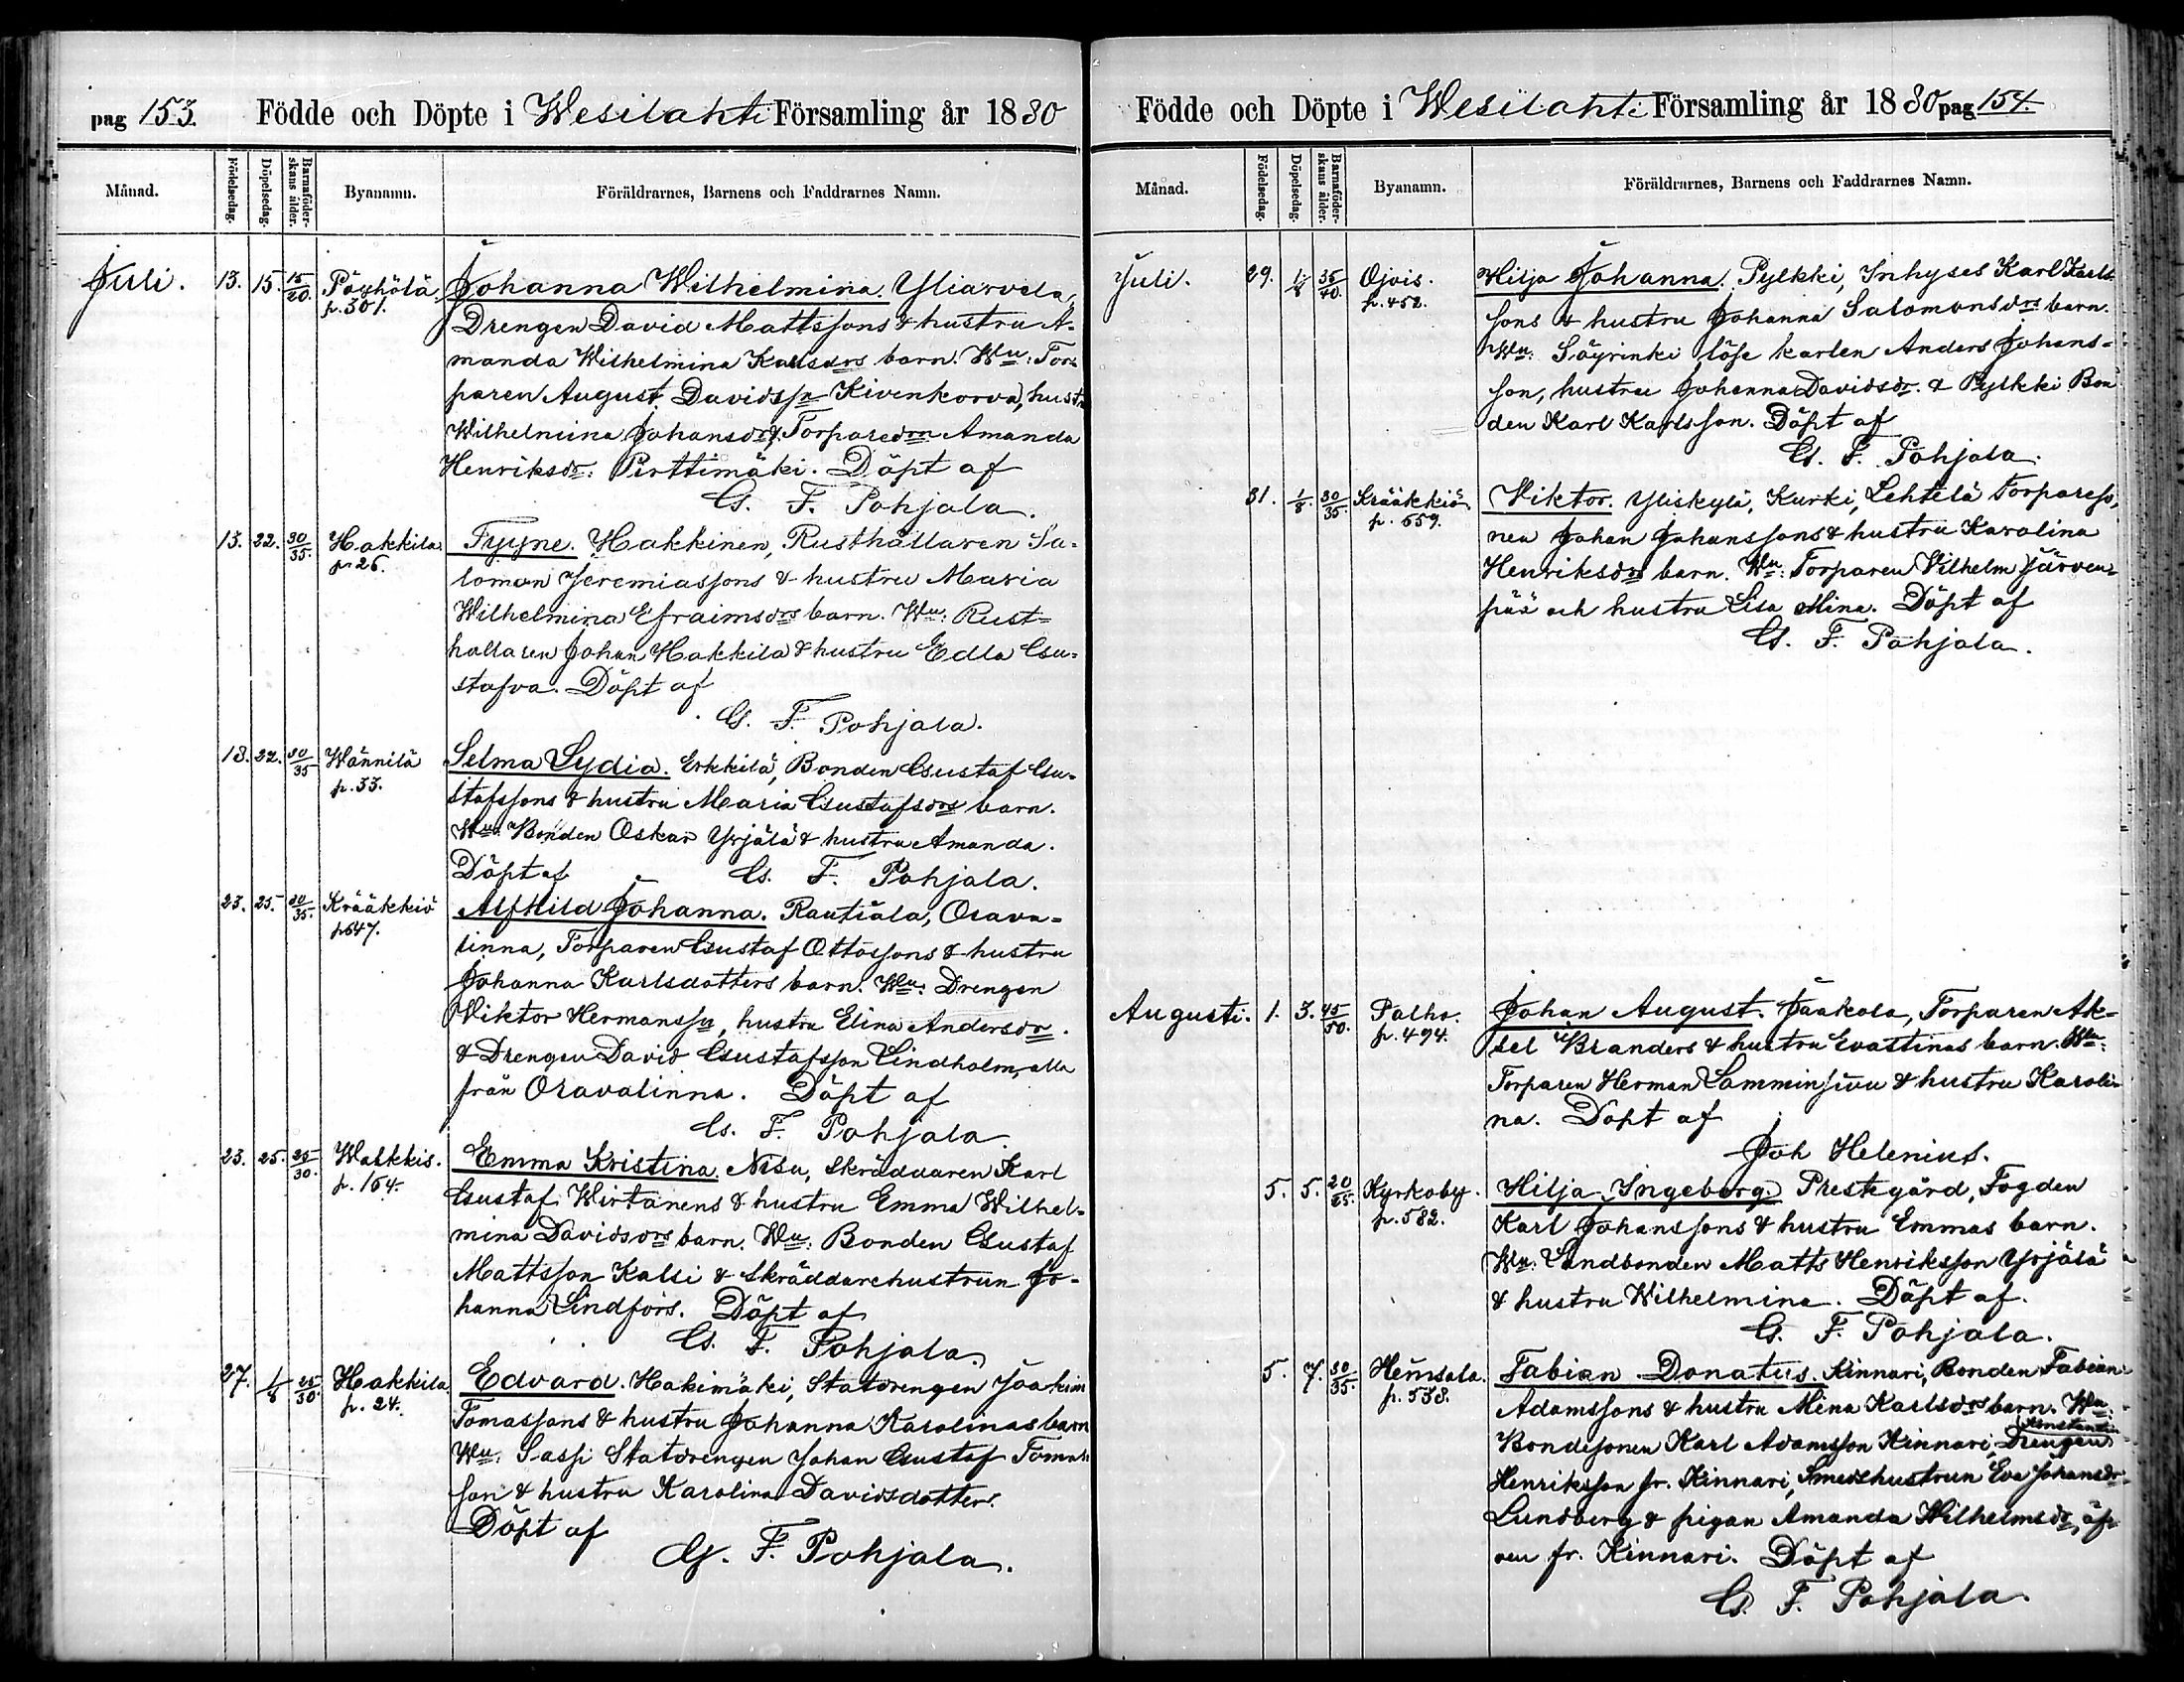 pag 153. Födde och Döpte i Wesilahti Församling år 1880
Månad. Födelsedag. Döpelsedag. Barnaföderskans ålder. Byanamn. Föräldrarnes, Barnens och Faddrarnes Namn.
Juli. 13. 15. 15/20. Pöyhölä p. 301. Johanna Wilhelmina. Yliarvela,
Drengen David Mattssons & hustru A-
manda Wilhelmina Karlsdrs barn. Wn: Tor-
paren August Davidssn Kivenkorva, hustru
Wilhelmina Johansdr, Torparedrn Amanda
Henriksdr: Perttimäki. Döpt af
G. F. Pohjala.
13. 22. 30/35. Hakkila p. 26. Tyyne. Hakkinen, Rusthållaren Sa-
lomon Jeremiassons & hustru Maria
Wilhelmina Efraimsdrs barn. Wn: Rust-
hållaren Johan Hakkila & hustru Edla Gu-
stafva. Döpt af
G. F. Pohjala.
18. 22. 30/35 Wännilä p. 33. Selma Lydia. Erkkilä, Bonden Gustaf Gu-
stafssons & hustru Maria Gustafsdrs barn.
Wn: Bonden Oskar Yrjälä & hustru Amanda.
Döpt af G. F. Pohjala.
23. 25. 30/35. Krääkkiö p. 647. Alfhild Johanna. Rautiala, Orava-
linna, Torparen Gustaf Ottossons & hustru
Johanna Karlsdotters barn. Wn: Drengen
Wiktor Hermanssn, hustru Elina Andersdr.
& Drengen David Gustafsson Lindholm, alla
från Oravalinna. Döpt af
G. F. Pohjala.
23. 25. 25/30. Wakkis. p. 164. Emma Kristina. Nisu, Skräddaren Karl
Gustaf Wirtanens & hustru Emma Wilhel-
mina Davidsdrs barn. Wn: Bonden Gustaf
Mattsson Kalsi & Skräddarehustrun Jo-
hanna Lindfors. Döpt af
G. F. Pohjala.
27. 1/8 25/30. Hakkila p. 24. Edvard. Hakimäki, Statdrengen Joakim
Tomassons & hustru Johanna Karolinas barn
Wn: Sassi Statdrengen Johan Gustaf Tomas-
son & hustru Karolina Davidsdotter.
Döpt af
G. F. Pohjala.
Födde och Döpte i Wesilahti Församling år 1880 pag 154.
Månad. Födelsedag. Döpelsedag. Barnaföderskans ålder. Byanamn. Föräldrarnes, Barnens och Faddrarnes Namn.
Juli. 29. 1/8 35/40. Ojois. p. 452. Hilja Johanna. Pylkki, Inhyses Karl Karls-
sons & hustru Johanna Salomonsdrs barn.
Wn: Säyrinki löse karlen Anders Johans-
son, hustru Johanna Davidsdr. & Pylkki Bon-
den Karl Karlsson. Döpt af
G. F. Pohjala.
31. 1/8. 30/35. Krääkkiö p. 659. Wiktor. Yliskylä, Kurki, Lehtelä Torpareso-
nen Johan Johanssons & hustru Karolina
Henriksdrs barn. Wn: Torparen Wilhelm Järven-
pää och hustru Lisa Mina. Döpt af
G. F. Pohjala.
Augusti. 1. 3. 45/50. Palho. p. 494. Johan August. Jaakola, Torparen Ak-
sel Branders & hustru Evastinas barn. Wn:
Torparen Herman Lamminsivu & hustru Karoli-
na. Döpt af
Joh Helenius.
5. 5. 20/25. Kyrkoby. p. 582. Hilja Ingeborg. Prestegård, Fogden
Karl Johanssons & hustru Emmas barn.
Wn: Landbonden Matts Henriksson Yrjälä
& hustru Wilhelmina. Döpt af.
G. F. Pohjala.
5. 7. 30/35. Hinsala. p. 538. Fabian Donatus. Kinnari, Bonden Fabian
Adamssons & hustru Mina Karlsdrs barn. Wn:
Bondesonen Karl Adamsson Kinnari, Drengen Konstantin
Henriksson fr. Kinnari, Smedshustrun Eva Johansdr
Lundberg & pigan Amanda Wilhelmsdr, äf-
ven fr. Kinnari. Döpt af
G. F. Pohjala.